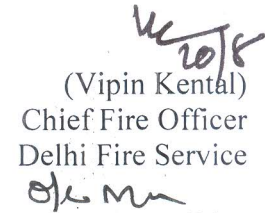 20/8
(Vipin Kental)
Chief Fire Officer
Delhi Fire Service